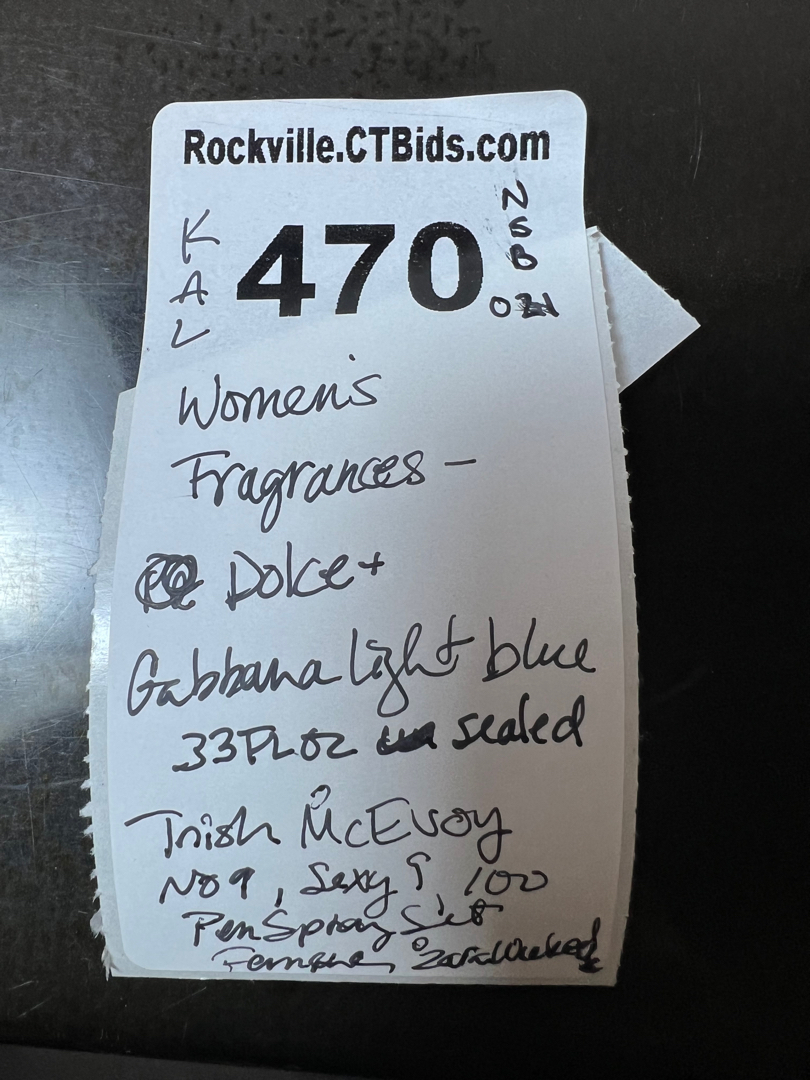 Rockville.CTBids.com
KAL
470
NSB
021
Women's
Fragrances -
Dolce +
Gabbana light blue
33 FL OZ sealed
Trish McEvoy
No 9, Sexy 9, 100
Pen Spray Set